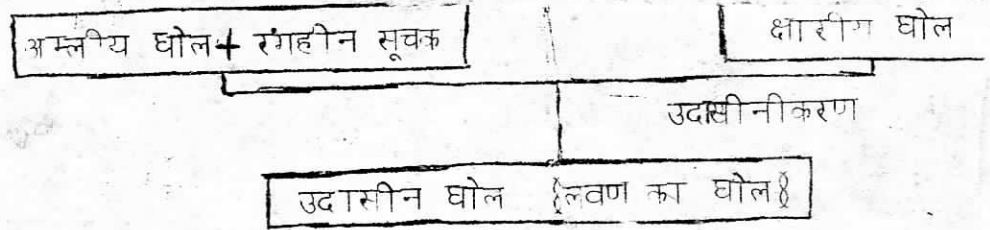 अम्लीय घोल + रंगहीन सूचक
क्षारीय घोल
उदासीनीकरण
उदासीन घोल (लवण का घोल)